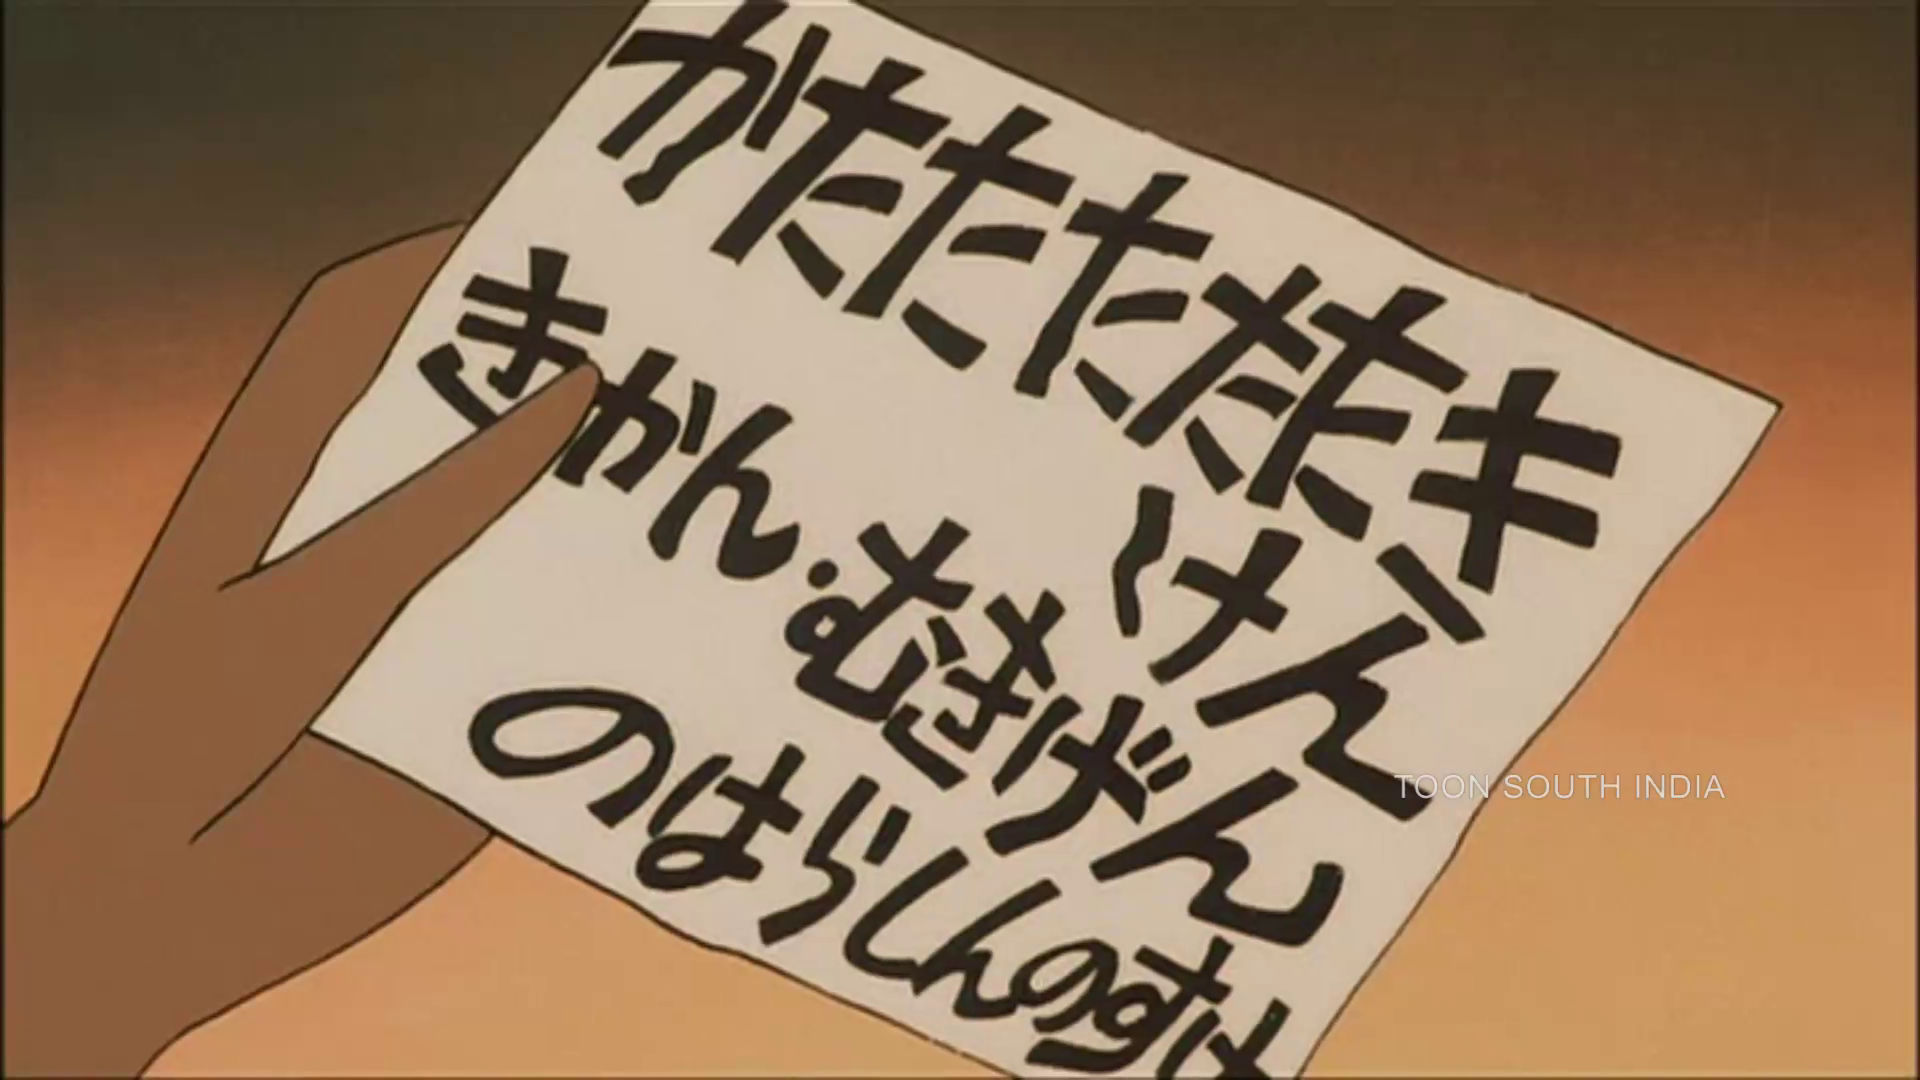 かたたたたたき
けん
きかん・むきげん
のはらしんのすけ
TOON SOUTH INDIA